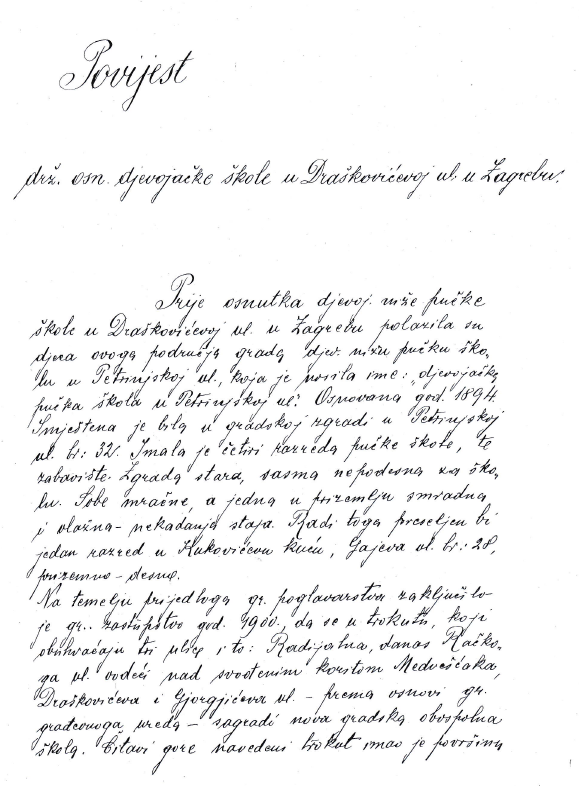 Povijest
drž. osn. djevojačke škole u Draškovićevoj ul. u Zagrebu.
Prije osnutka djevoj. niže pučke
škole u Draškovićevoj ul. u Zagrebu polazila su
djeca ovoga područja grada djev. nižu pučku ško-
lu u Petrinjskoj ul., koja je nosila ime: „djevojačka
pučka škola u Petrinjskoj ul." Osnovana god. 1894.
Smještena je bila u gradskoj zgradi u Petrinjskoj
ul. br.: 32. Imala je četiri razreda pučke škole, te
zabavište. Zgrada stara, sasma nepodesna za ško-
lu. Sobe mračne, a jedna u prizemlju smradna
i vlažna - nekadanja staja. Radi toga preseljen bi
jedan razred u Kukovićevu kuću, Gajeva ul. br.: 28,
prizemno - desno.
Na temelju prijedloga gr. poglavarstva zaključilo
je gr. zastupstvo god. 1900., da se u trokutu, koji
obuhvaćaju tri ulice i to: Radijalna, danas Račko-
ga ul. vodeći nad svođenim koritom Medveščaka,
Draškovićeva i Gjorgjićeva ul. - prema osnovi gr.
građevnoga ureda - sagradi nova gradska obospolna
škola. Čitavi gore navedeni trokut imao je površinu